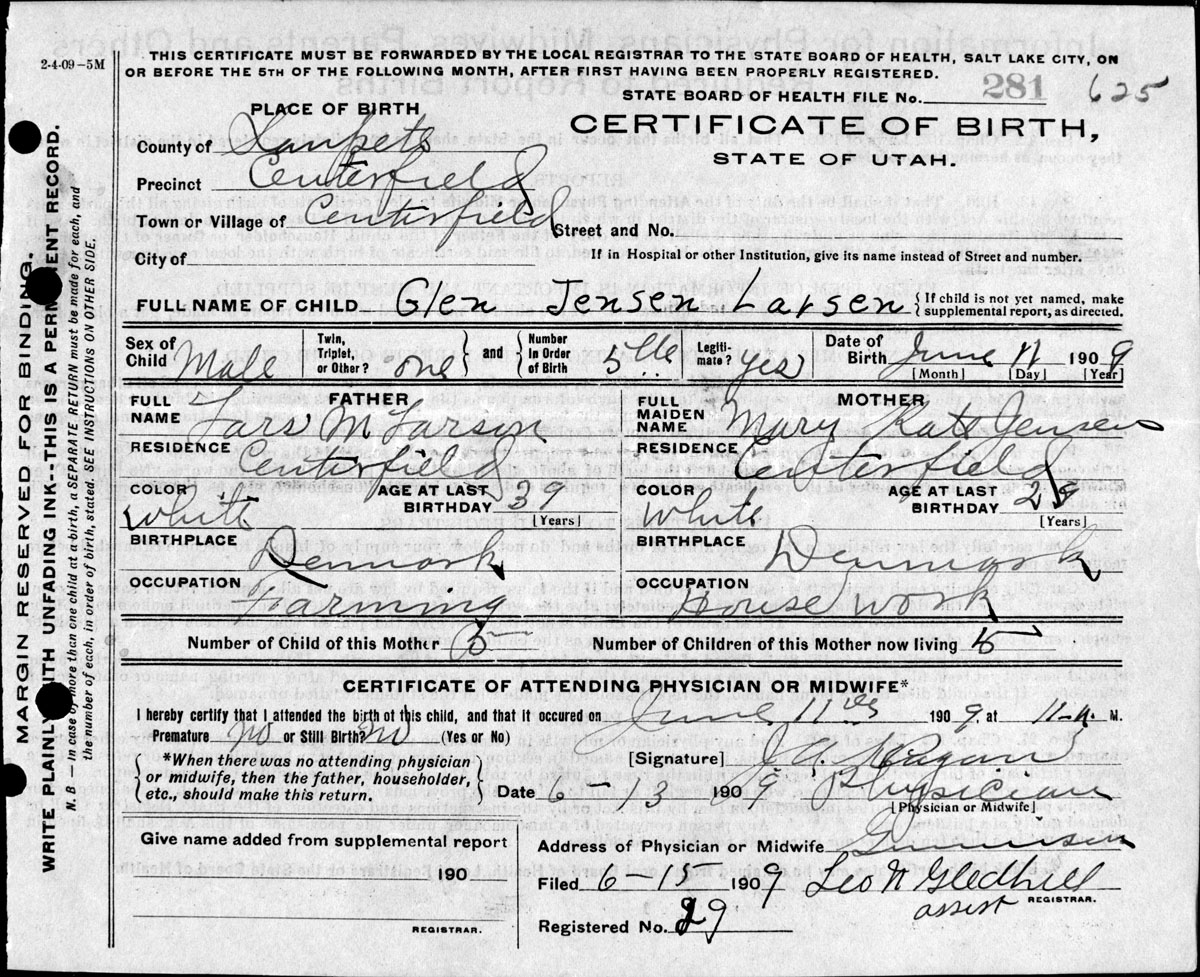 2-4-09-5M
THIS CERTIFICATE MUST BE FORWARDED BY THE LOCAL REGISTRAR TO THE STATE BOARD OF HEALTH, SALT LAKE CITY, ON
OR BEFORE THE 5TH OF THE FOLLOWING MONTH, AFTER FIRST HAVING BEEN PROPERLY REGISTERED.
STATE BOARD OF HEALTH FILE No. 281 625
PLACE OF BIRTH
CERTIFICATE OF BIRTH,
STATE OF UTAH.
County of Sanpete
Precinct Centerfield
Town or Village of Centerfield Street and No.
City of If in Hospital or other Institution, give its name instead of Street and number.
FULL NAME OF CHILD Glen Jensen Larsen { If child is not yet named, make supplemental report, as directed.
Sex of Child Male Twin, Triplet, or Other? one } and { Number in Order of Birth 5th Legitimate? yes Date of Birth June 11 1909
[Month] [Day] [Year]
FATHER
FULL NAME Lars M Larsen
RESIDENCE Centerfield
COLOR White AGE AT LAST BIRTHDAY 39
[Years]
BIRTHPLACE Denmark
OCCUPATION Farming
MOTHER
FULL MAIDEN NAME Mary Jensen
RESIDENCE Centerfield
COLOR White AGE AT LAST BIRTHDAY
[Years]
BIRTHPLACE Denmark
OCCUPATION House Work
Number of Child of this Mother 5 Number of Children of this Mother now living 5
CERTIFICATE OF ATTENDING PHYSICIAN OR MIDWIFE*
I hereby certify that I attended the birth of this child, and that it occured on June 11 1909 at 11 M.
Premature no or Still Birth? no (Yes or No)
{ *When there was no attending physician
or midwife, then the father, householder,
etc., should make this return. }
[Signature] Hagan
Date 6-13 1909 Physician
[Physician or Midwife]
Give name added from supplemental report
190
REGISTRAR.
Address of Physician or Midwife Gunnison
Filed 6-15 1909 Leo N Gledhill
assist REGISTRAR.
Registered No. 29
MARGIN RESERVED FOR BINDING.
WRITE PLAINLY WITH UNFADING INK--THIS IS A PERMANENT RECORD.
N. B. — In case of more than one child at a birth, a SEPARATE RETURN must be made for each, and
the number of each, in order of birth, stated. SEE INSTRUCTIONS ON OTHER SIDE.